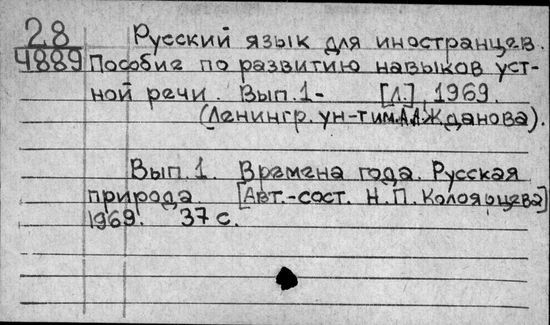 28
4889
Русский язык для иностранцев.
Пособие по развитию навыков уст-
ной речи. Вып.1- [Л.], 1969.
(Ленингр. ун-т им. А.А. Жданова).
Вып.1. Времена года. Русская
природа. [Авт.-сост. Н.П. Колоярцева]
1969. 37 с.